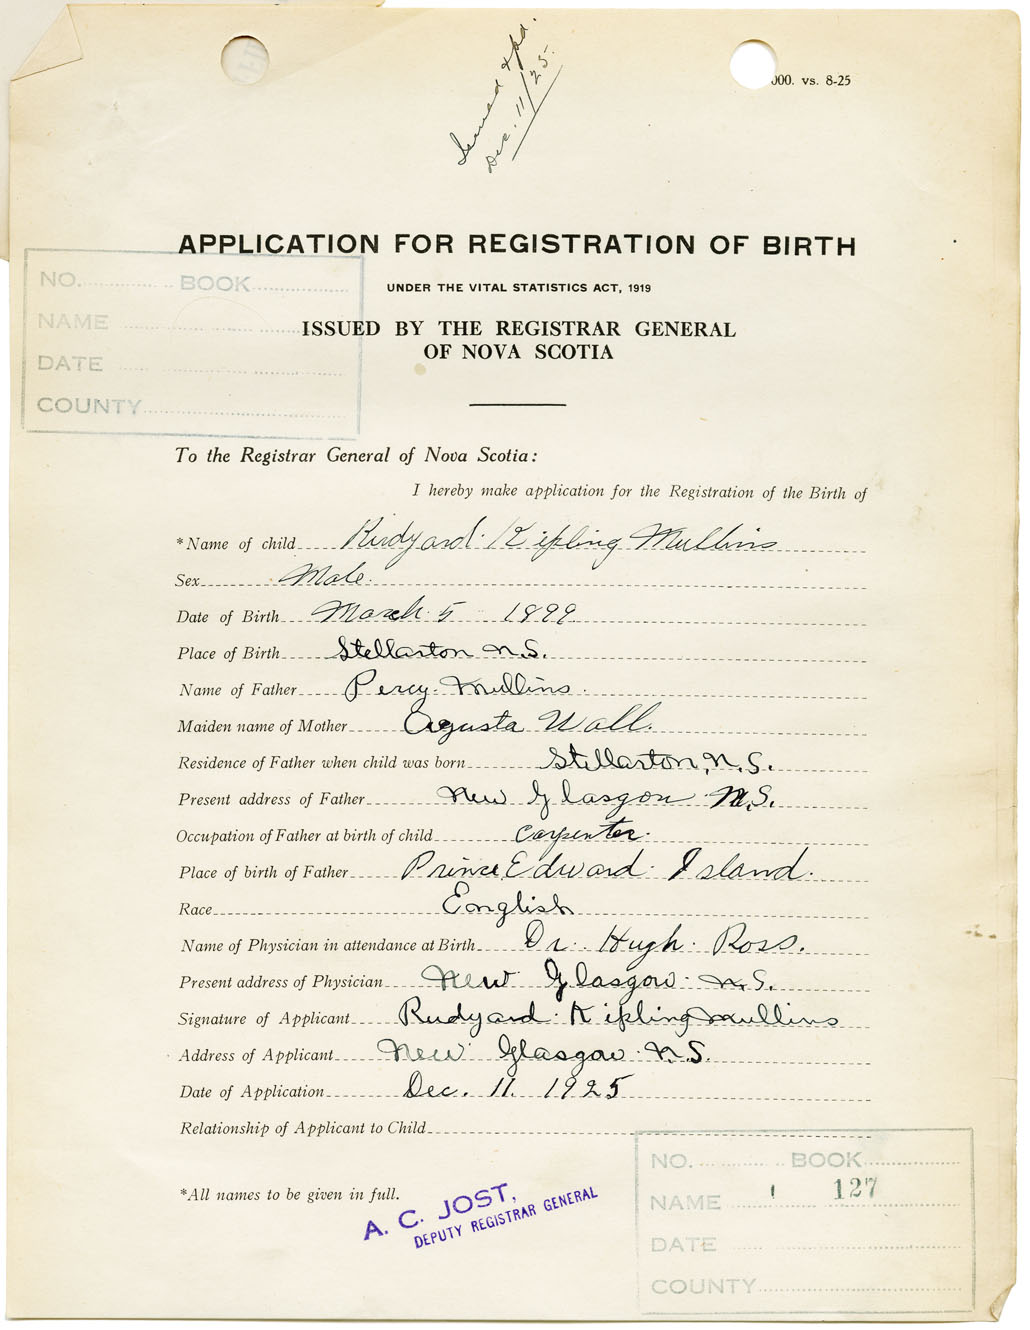 Issued & pd.
Dec. 11/25.
000. vs. 8-25
APPLICATION FOR REGISTRATION OF BIRTH
UNDER THE VITAL STATISTICS ACT, 1919
ISSUED BY THE REGISTRAR GENERAL
OF NOVA SCOTIA
NO. BOOK
NAME
DATE
COUNTY
To the Registrar General of Nova Scotia:
I hereby make application for the Registration of the Birth of
*Name of child Rudyard Kipling Mullins
Sex Male.
Date of Birth March 5 1899
Place of Birth Stellarton N.S.
Name of Father Percy Mullins.
Maiden name of Mother Agusta Wall.
Residence of Father when child was born Stellarton, N.S.
Present address of Father New Glasgow N.S.
Occupation of Father at birth of child Carpenter.
Place of birth of Father Prince Edward Island.
Race English
Name of Physician in attendance at Birth Dr. Hugh Ross.
Present address of Physician New Glasgow N.S.
Signature of Applicant Rudyard Kipling Mullins
Address of Applicant New Glasgow N.S.
Date of Application Dec. 11. 1925
Relationship of Applicant to Child
*All names to be given in full.
A. C. JOST,
DEPUTY REGISTRAR GENERAL
NO. BOOK
NAME 1 127
DATE
COUNTY